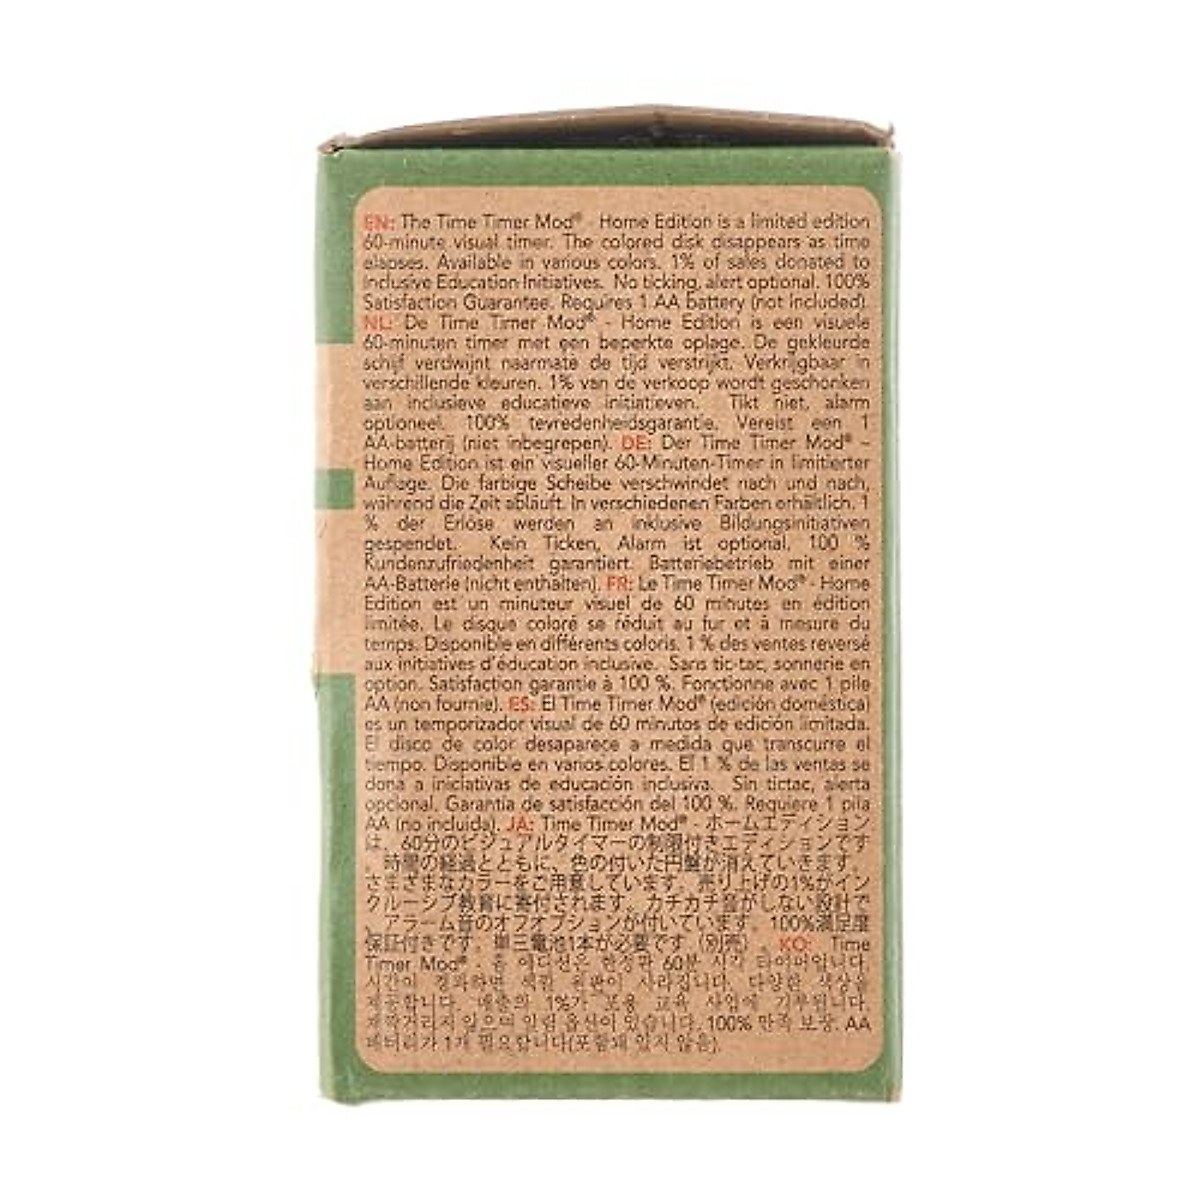 EN: The Time Timer Mod® - Home Edition is a limited edition
60-minute visual timer. The colored disk disappears as time
elapses. Available in various colors. 1% of sales donated to
Inclusive Education Initiatives. No ticking, alert optional. 100%
Satisfaction Guarantee. Requires 1 AA battery (not included).
NL: De Time Timer Mod® - Home Edition is een visuele
60-minuten timer met een beperkte oplage. De gekleurde
schijf verdwijnt naarmate de tijd verstrijkt. Verkrijgbaar in
verschillende kleuren. 1% van de verkoop wordt geschonken
aan inclusieve educatieve initiatieven. Tikt niet, alarm
optioneel. 100% tevredenheidsgarantie. Vereist een 1
AA-batterij (niet inbegrepen). DE: Der Time Timer Mod® –
Home Edition ist ein visueller 60-Minuten-Timer in limitierter
Auflage. Die farbige Scheibe verschwindet nach und nach,
während die Zeit abläuft. In verschiedenen Farben erhältlich. 1
% der Erlöse werden an inklusive Bildungsinitiativen
gespendet. Kein Ticken, Alarm ist optional. 100 %
Kundenzufriedenheit garantiert. Batteriebetrieb mit einer
AA-Batterie (nicht enthalten). FR: Le Time Timer Mod® - Home
Edition est un minuteur visuel de 60 minutes en édition
limitée. Le disque coloré se réduit au fur et à mesure du
temps. Disponible en différents coloris. 1 % des ventes reversé
aux initiatives d'éducation inclusive. Sans tic-tac, sonnerie en
option. Satisfaction garantie à 100 %. Fonctionne avec 1 pile
AA (non fournie). ES: El Time Timer Mod® (edición doméstica)
es un temporizador visual de 60 minutos de edición limitada.
El disco de color desaparece a medida que transcurre el
tiempo. Disponible en varios colores. El 1 % de las ventas se
dona a iniciativas de educación inclusiva. Sin tictac, alerta
opcional. Garantía de satisfacción del 100 %. Requiere 1 pila
AA (no incluida). JA: Time Timer Mod® - ホームエディション
は、60分のビジュアルタイマーの制限付きエディションです
。時間の経過とともに、色の付いた円盤が消えていきます。
さまざまなカラーをご用意しています。売り上げの1%がイン
クルーシブ教育に寄付されます。カチカチ音がしない設計で
、アラーム音のオフオプションが付いています。100%満足度
保証付きです。単三電池1本が必要です（別売）。KO: Time
Timer Mod® - 홈 에디션은 한정판 60분 시각 타이머입니다.
시간이 경과하면 색깔 원판이 사라집니다. 다양한 색상을
제공합니다. 매출의 1%가 포용 교육 사업에 기부됩니다.
째깍거리지 않으며 알림 옵션이 있습니다. 100% 만족 보장. AA
배터리가 1개 필요합니다(포함돼 있지 않음).